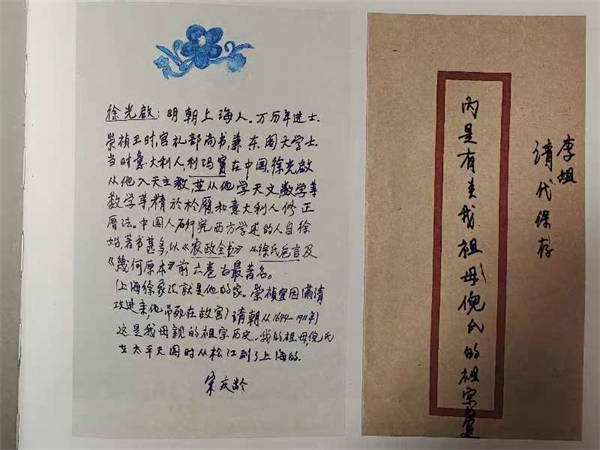 徐光啟：明朝上海人.万历年进士.
崇祯王时,官礼部尚书,兼东阁大学士.
当时意大利人,利玛窦在中国,徐光啟
从他入天主教,並从他学天文数学等
数学等精於於曆和意大利人修正
曆法.中国人研究西方学述的人自徐
始,著书甚多,以《农政全书》《徐氏庖言及
《幾何原本》前六卷为最著名.
(上海徐家汇就是他的家.崇祯皇因满清
攻进来他吊死在故宫)请朝从1644-1911年)
这是我母親的祖宗历史.我的祖母倪氏
在太平天国时从松江到了上海的.
宋庆龄
李姐
请代保存
内是有关我祖母倪氏的祖宗